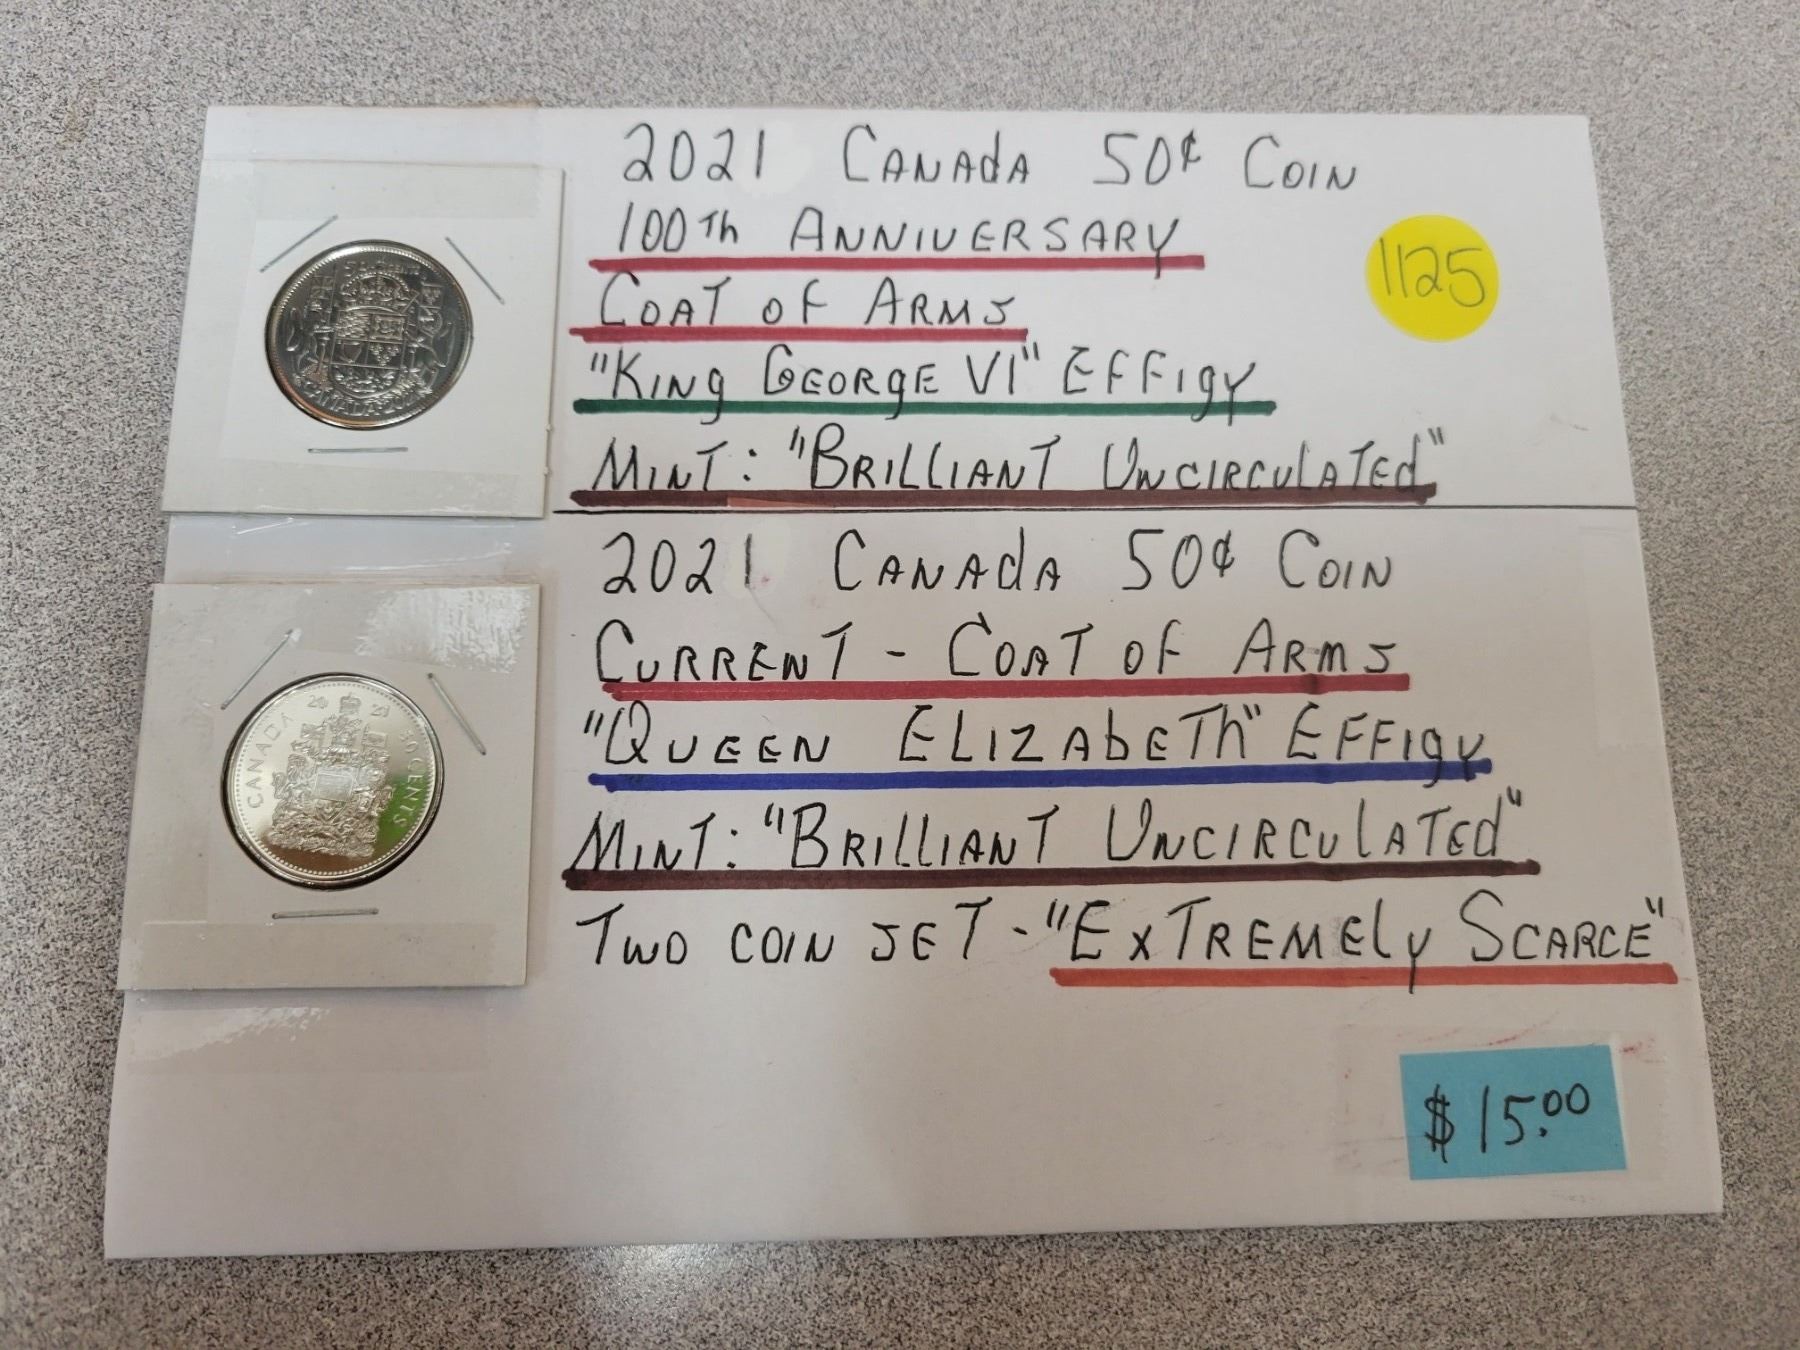 2021 CANADA 50¢ COIN
100TH ANNIVERSARY
COAT OF ARMS
"KING GEORGE VI" EFFIGY
MINT: "BRILLIANT UNCIRCULATED"
1125
50 CENTS
CANADA 2021
2021 CANADA 50¢ COIN
CURRENT - COAT OF ARMS
"QUEEN ELIZABETH" EFFIGY
MINT: "BRILLIANT UNCIRCULATED"
TWO COIN SET - "EXTREMELY SCARCE"
CANADA 2021 50 CENTS
$15.00